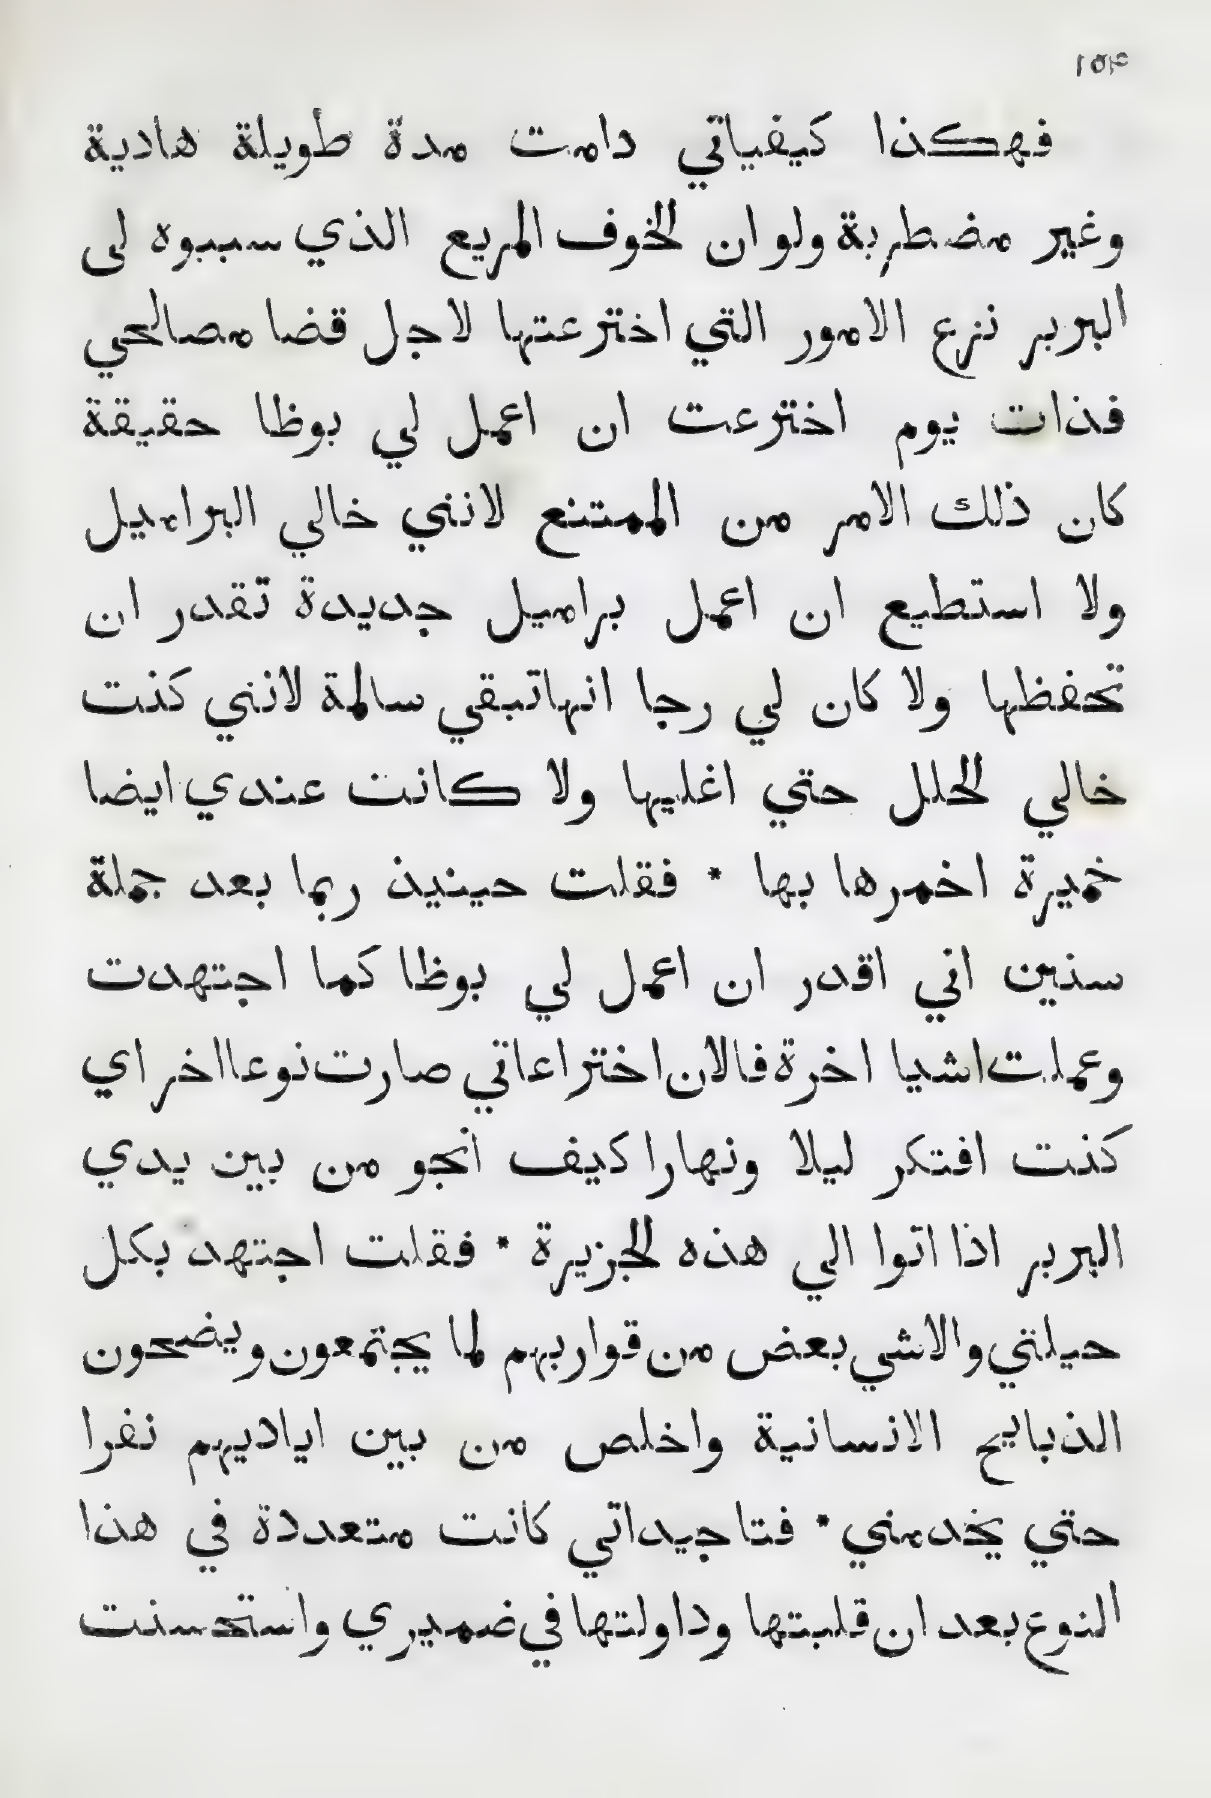 ١٥٣
فهكذا كيفياتي دامت مدة طويلة هادية
وغير مضطربة ولو ان الخوف المريع الذي سببوه لى
البربر نزع الامور التي اخترعتها لاجل قضا مصالحي
فذات يوم اخترعت ان اعمل لي بوظا حقيقة
كان ذلك الامر من الممتنع لانني خالي البراميل
ولا استطيع ان اعمل براميل جديدة تقدر ان
تحفظها ولا كان لي رجا انها تبقي سالمة لانني كنت
خالي الحلل حتي اغليها ولا كانت عندي ايضا
خميرة اخمرها بها * فقلت حينيذ ربما بعد جملة
سنين اني اقدر ان اعمل لي بوظا كما اجتهدت
وعملت اشيا اخرة فالان اختراعاتي صارت نوعا اخر اي
كنت افتكر ليلا ونهارا كيف انجو من بين يدي
البربر اذا اتوا الي هذه الجزيرة * فقلت اجتهد بكل
حيلتي والاشي بعض من قواربهم لما يجتمعون ويضحون
الذبايح الانسانية واخلص من بين اياديهم نفرا
حتي يخدمني * فتاجيداتي كانت متعددة في هذا
النوع بعد ان قلبتها وداولتها في ضميري واستحسنت